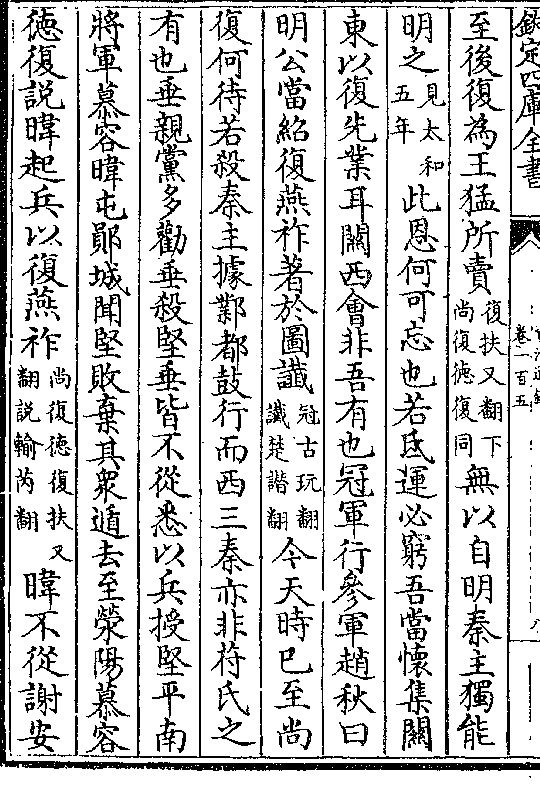 欽定四庫全書
卷一百五
至後復為王猛所賣復扶又翻下尚復德復同無以自明秦主獨能
明之見太和五年此恩何可忘也若氐運必窮吾當懷集關
東以復先業耳關西會非吾有也冠軍行參軍趙秋曰
明公當紹復燕祚著於圖讖冠古玩翻讖楚譖翻今天時已至尚
復何待若殺秦主據鄴都鼓行而西三秦亦非苻氏之
有也垂親黨多勸垂殺堅垂皆不從悉以兵授堅平南
將軍慕容暐屯鄖城聞堅敗棄其衆遁去至滎陽慕容
德復説暐起兵以復燕祚尚復德復扶又翻説輸芮翻暐不從謝安